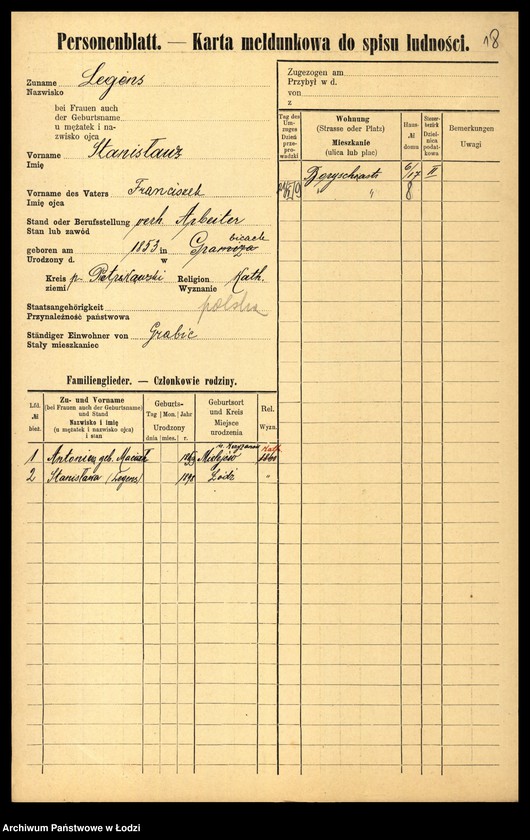 Personenblatt. — Karta meldunkowa do spisu ludności.
18
Zuname Legens
Nazwisko
bei Frauen auch
der Geburtsname
u mężatek i na-
zwisko ojca
Vorname Stanisław
Imię
Vorname des Vaters Franciszek
Imię ojca
Stand oder Berufsstellung verh. Arbeiter
Stan lub zawód
geboren am 1853 in
Urodzony d. w
Kreis p. Petrokowski Religion Kath.
ziemi/ Wyznanie
Staatsangehörigkeit polska
Przynależność państwowa
Ständiger Einwohner von Grabic
Stały mieszkaniec
Zugezogen am
Przybył w d.
von
z
Tag des Um-zuges Dzień prze-pro-wadzki
Wohnung (Strasse oder Platz) Mieszkanie (ulica lub plac)
Haus-№ domu
Steuer-bezirk Dziel-nica podat-kowa
Bemerkungen Uwagi
6/17 II
" " 8
Familienglieder. — Członkowie rodziny.
Lfd. № bież.
Zu- und Vorname (bei Frauen auch der Geburtsname) und Stand Nazwisko i imię (u mężatek i nazwisko ojca) i stan
Geburts- Tag Mon. Jahr Urodzony dnia mies. r.
Geburtsort und Kreis Miejsce urodzenia
Rel. Wyzn.
1 Antonina geb. Kath.
2 Stanisława (Legens) 1898 Łódź "
Archiwum Państwowe w Łodzi